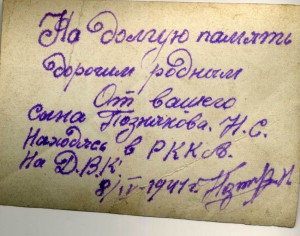 На долгую память
дорогим родным
От вашего
сына Познякова. Н.С.
Находясь в РККА.
На Д.В.К.
8/IV-1941г.